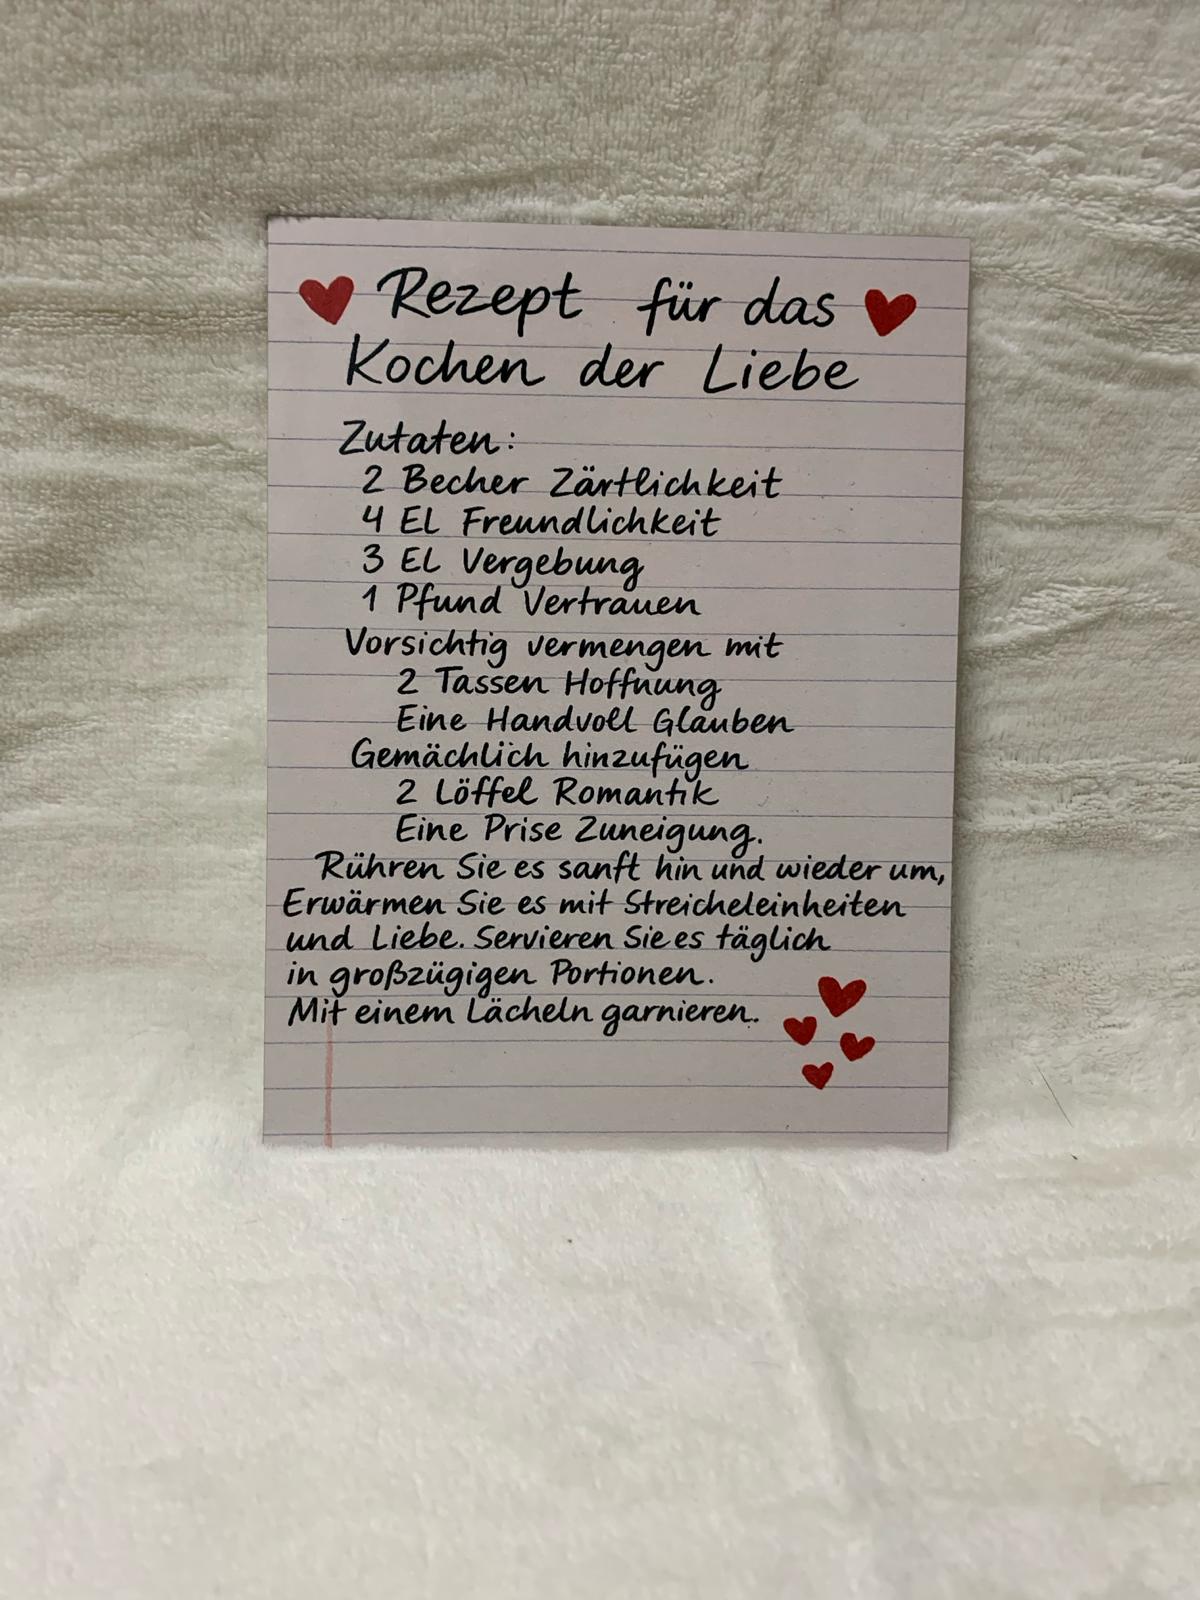 Rezept für das
Kochen der Liebe
Zutaten:
2 Becher Zärtlichkeit
4 EL Freundlichkeit
3 EL Vergebung
1 Pfund Vertrauen
Vorsichtig vermengen mit
2 Tassen Hoffnung
Eine Handvoll Glauben
Gemächlich hinzufügen
2 Löffel Romantik
Eine Prise Zuneigung.
Rühren Sie es sanft hin und wieder um,
Erwärmen Sie es mit Streicheleinheiten
und Liebe. Servieren Sie es täglich
in großzügigen Portionen.
Mit einem Lächeln garnieren.